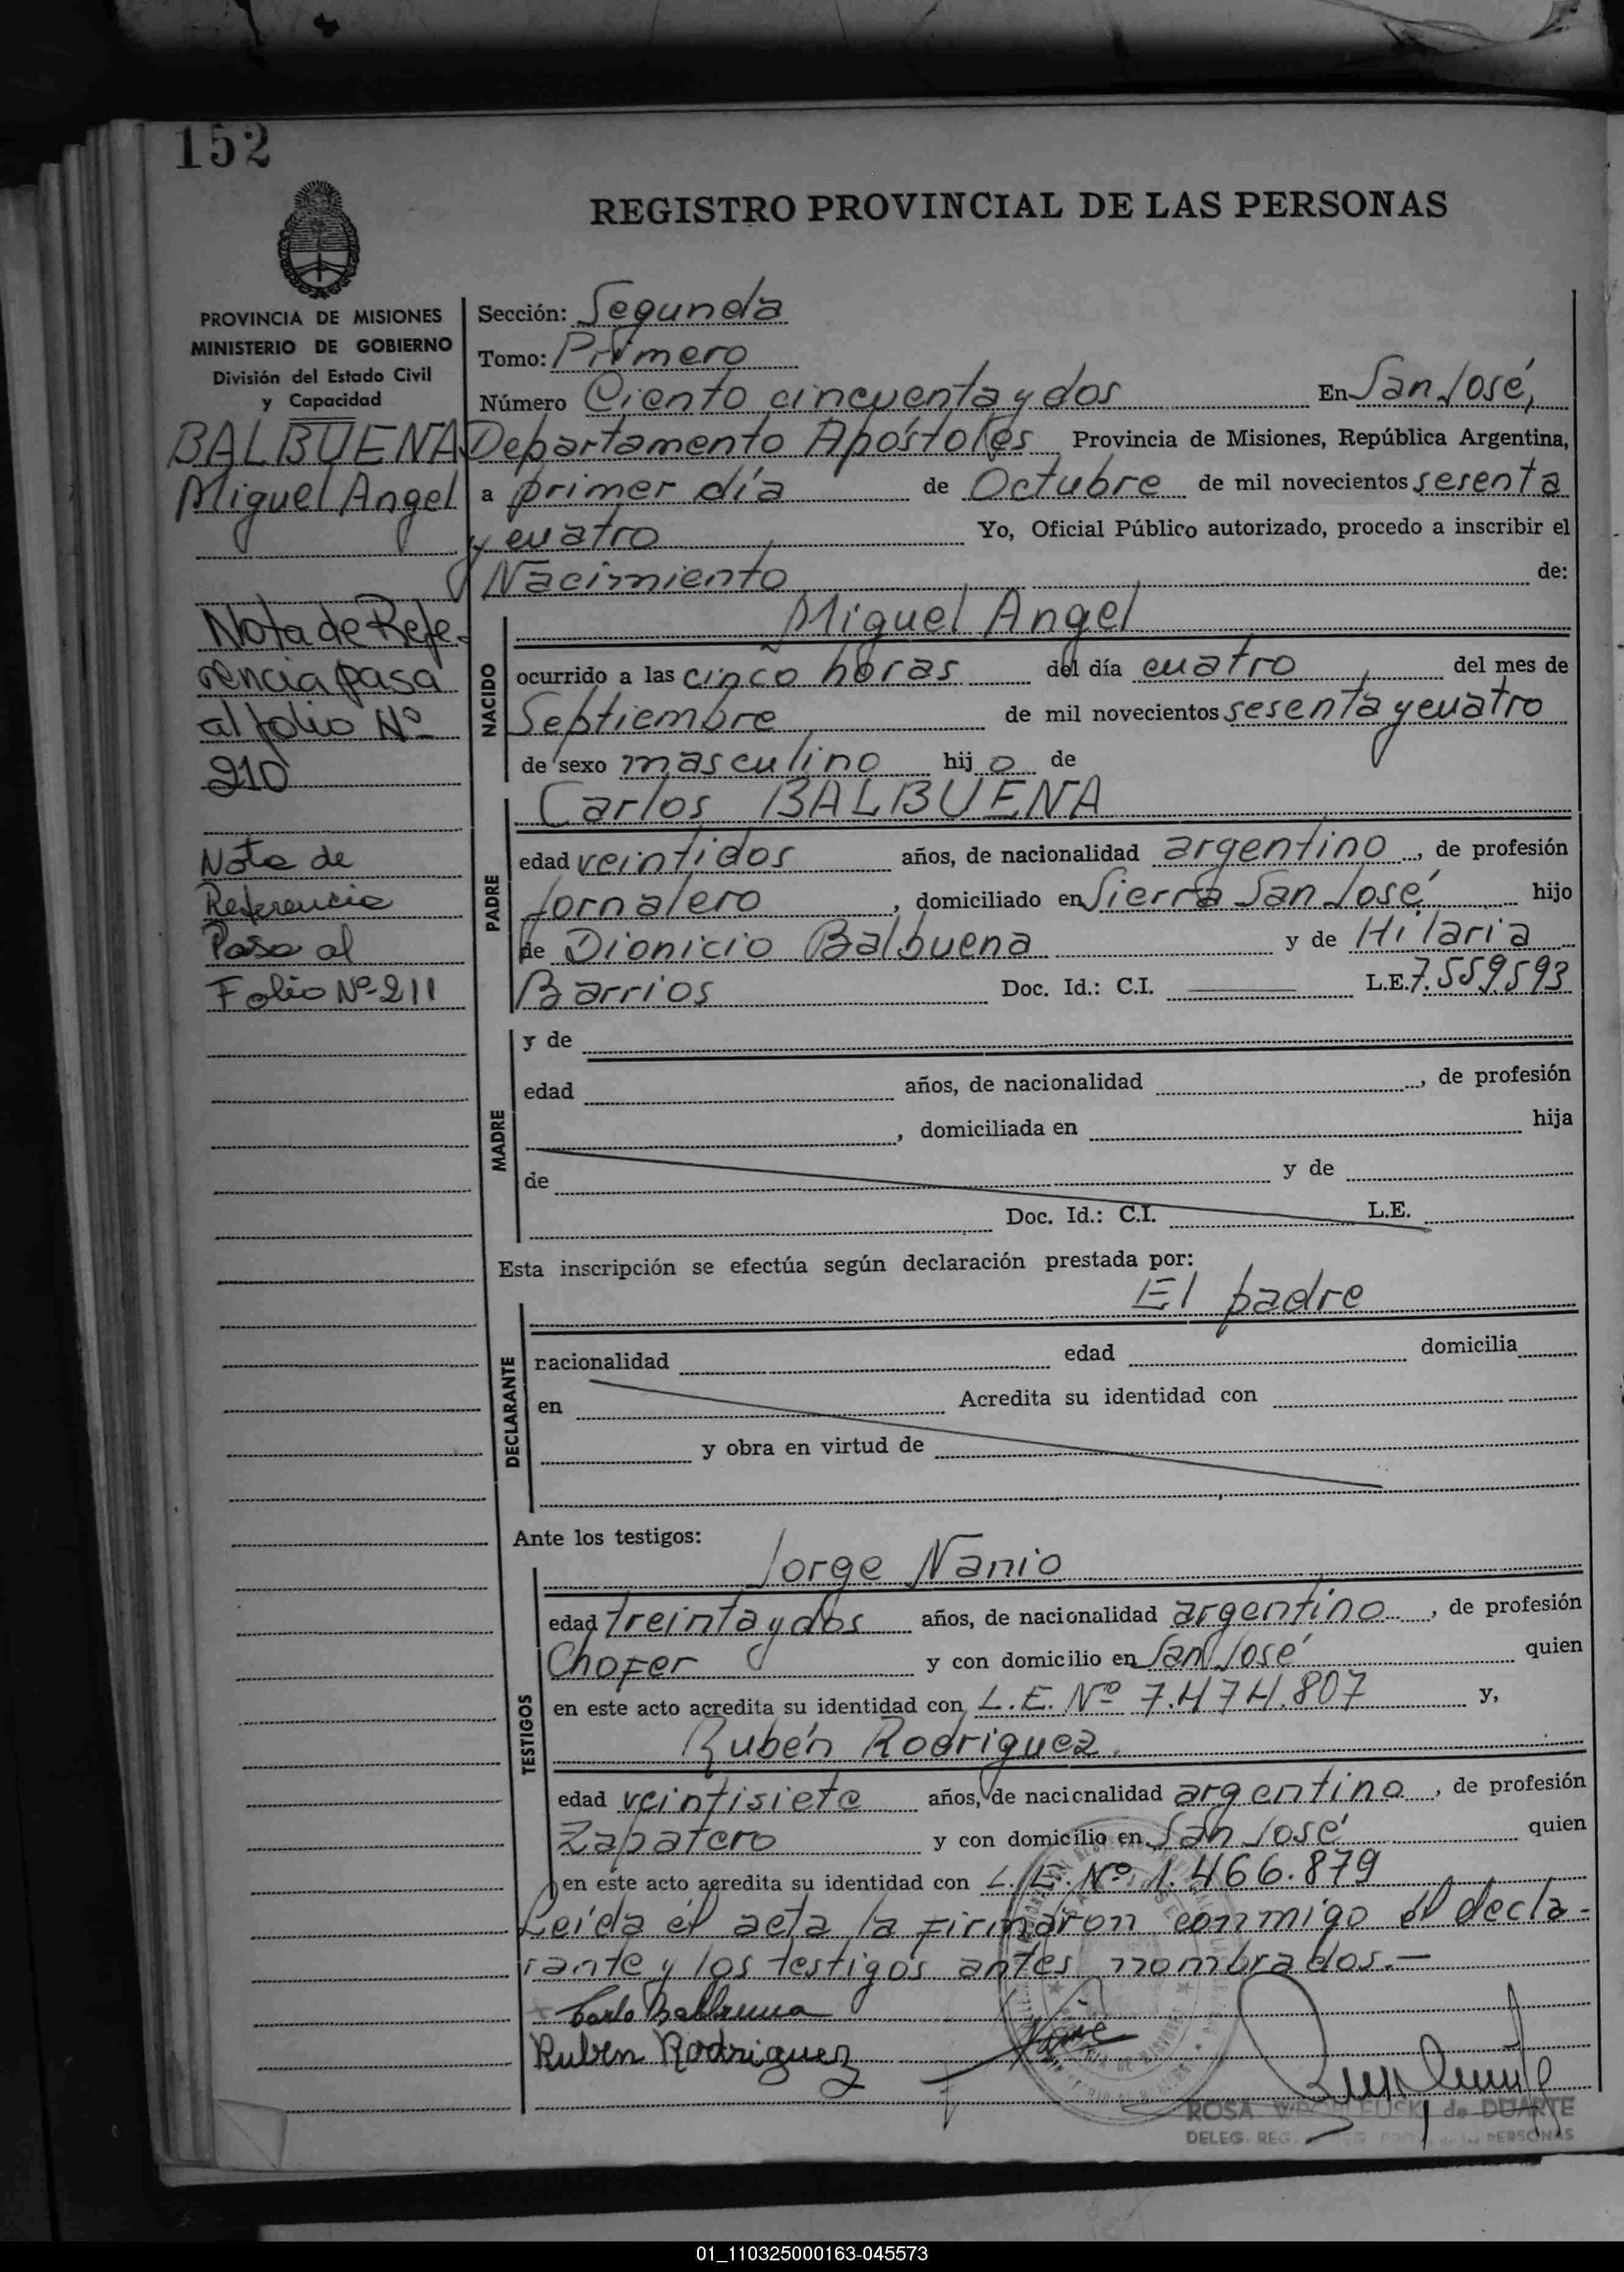 152
REGISTRO PROVINCIAL DE LAS PERSONAS
PROVINCIA DE MISIONES
MINISTERIO DE GOBIERNO
División del Estado Civil
y Capacidad
BALBUENA
Miguel Angel
Nota de Refe-
rencia pasa
al folio Nº
210
Nota de
Referencia
Pasa al
Folio Nº 211
Sección: Segunda
Tomo: Primero
Número Ciento cincuenta y dos En San José,
Departamento Apóstoles Provincia de Misiones, República Argentina,
a primer día de Octubre de mil novecientos sesenta
y cuatro Yo, Oficial Público autorizado, procedo a inscribir el
Nacimiento de:
NACIDO
Miguel Angel
ocurrido a las cinco horas del día cuatro del mes de
Septiembre de mil novecientos sesenta y cuatro
de sexo masculino hijo de
PADRE
Carlos BALBUENA
edad veintidos años, de nacionalidad argentino, de profesión
Jornalero, domiciliado en Sierra San José hijo
de Dionicio Balbuena y de Hilaria
Barrios Doc. Id.: C.I. L.E. 7.559.593
MADRE
y de
edad años, de nacionalidad , de profesión
, domiciliada en hija
de y de
Doc. Id.: C.I. L.E.
Esta inscripción se efectúa según declaración prestada por:
El padre
DECLARANTE
racionalidad edad domicilia
en Acredita su identidad con
y obra en virtud de
Ante los testigos:
TESTIGOS
Jorge Nanio
edad treinta y dos años, de nacionalidad argentino, de profesión
Chofer y con domicilio en San José quien
en este acto acredita su identidad con L.E. Nº 7.474.807 y,
Rubén Rodriguez
edad veintisiete años, de nacionalidad argentino, de profesión
Zapatero y con domicilio en San José quien
en este acto acredita su identidad con L.E. Nº 1.466.879
Leída el acta la firmaron conmigo el decla-
rante y los testigos antes nombrados.—
Carlo Balbuena
Ruben Rodriguez
ROSA de DUARTE
DELEG. REG. de las PERSONAS
01_110325000163-045573